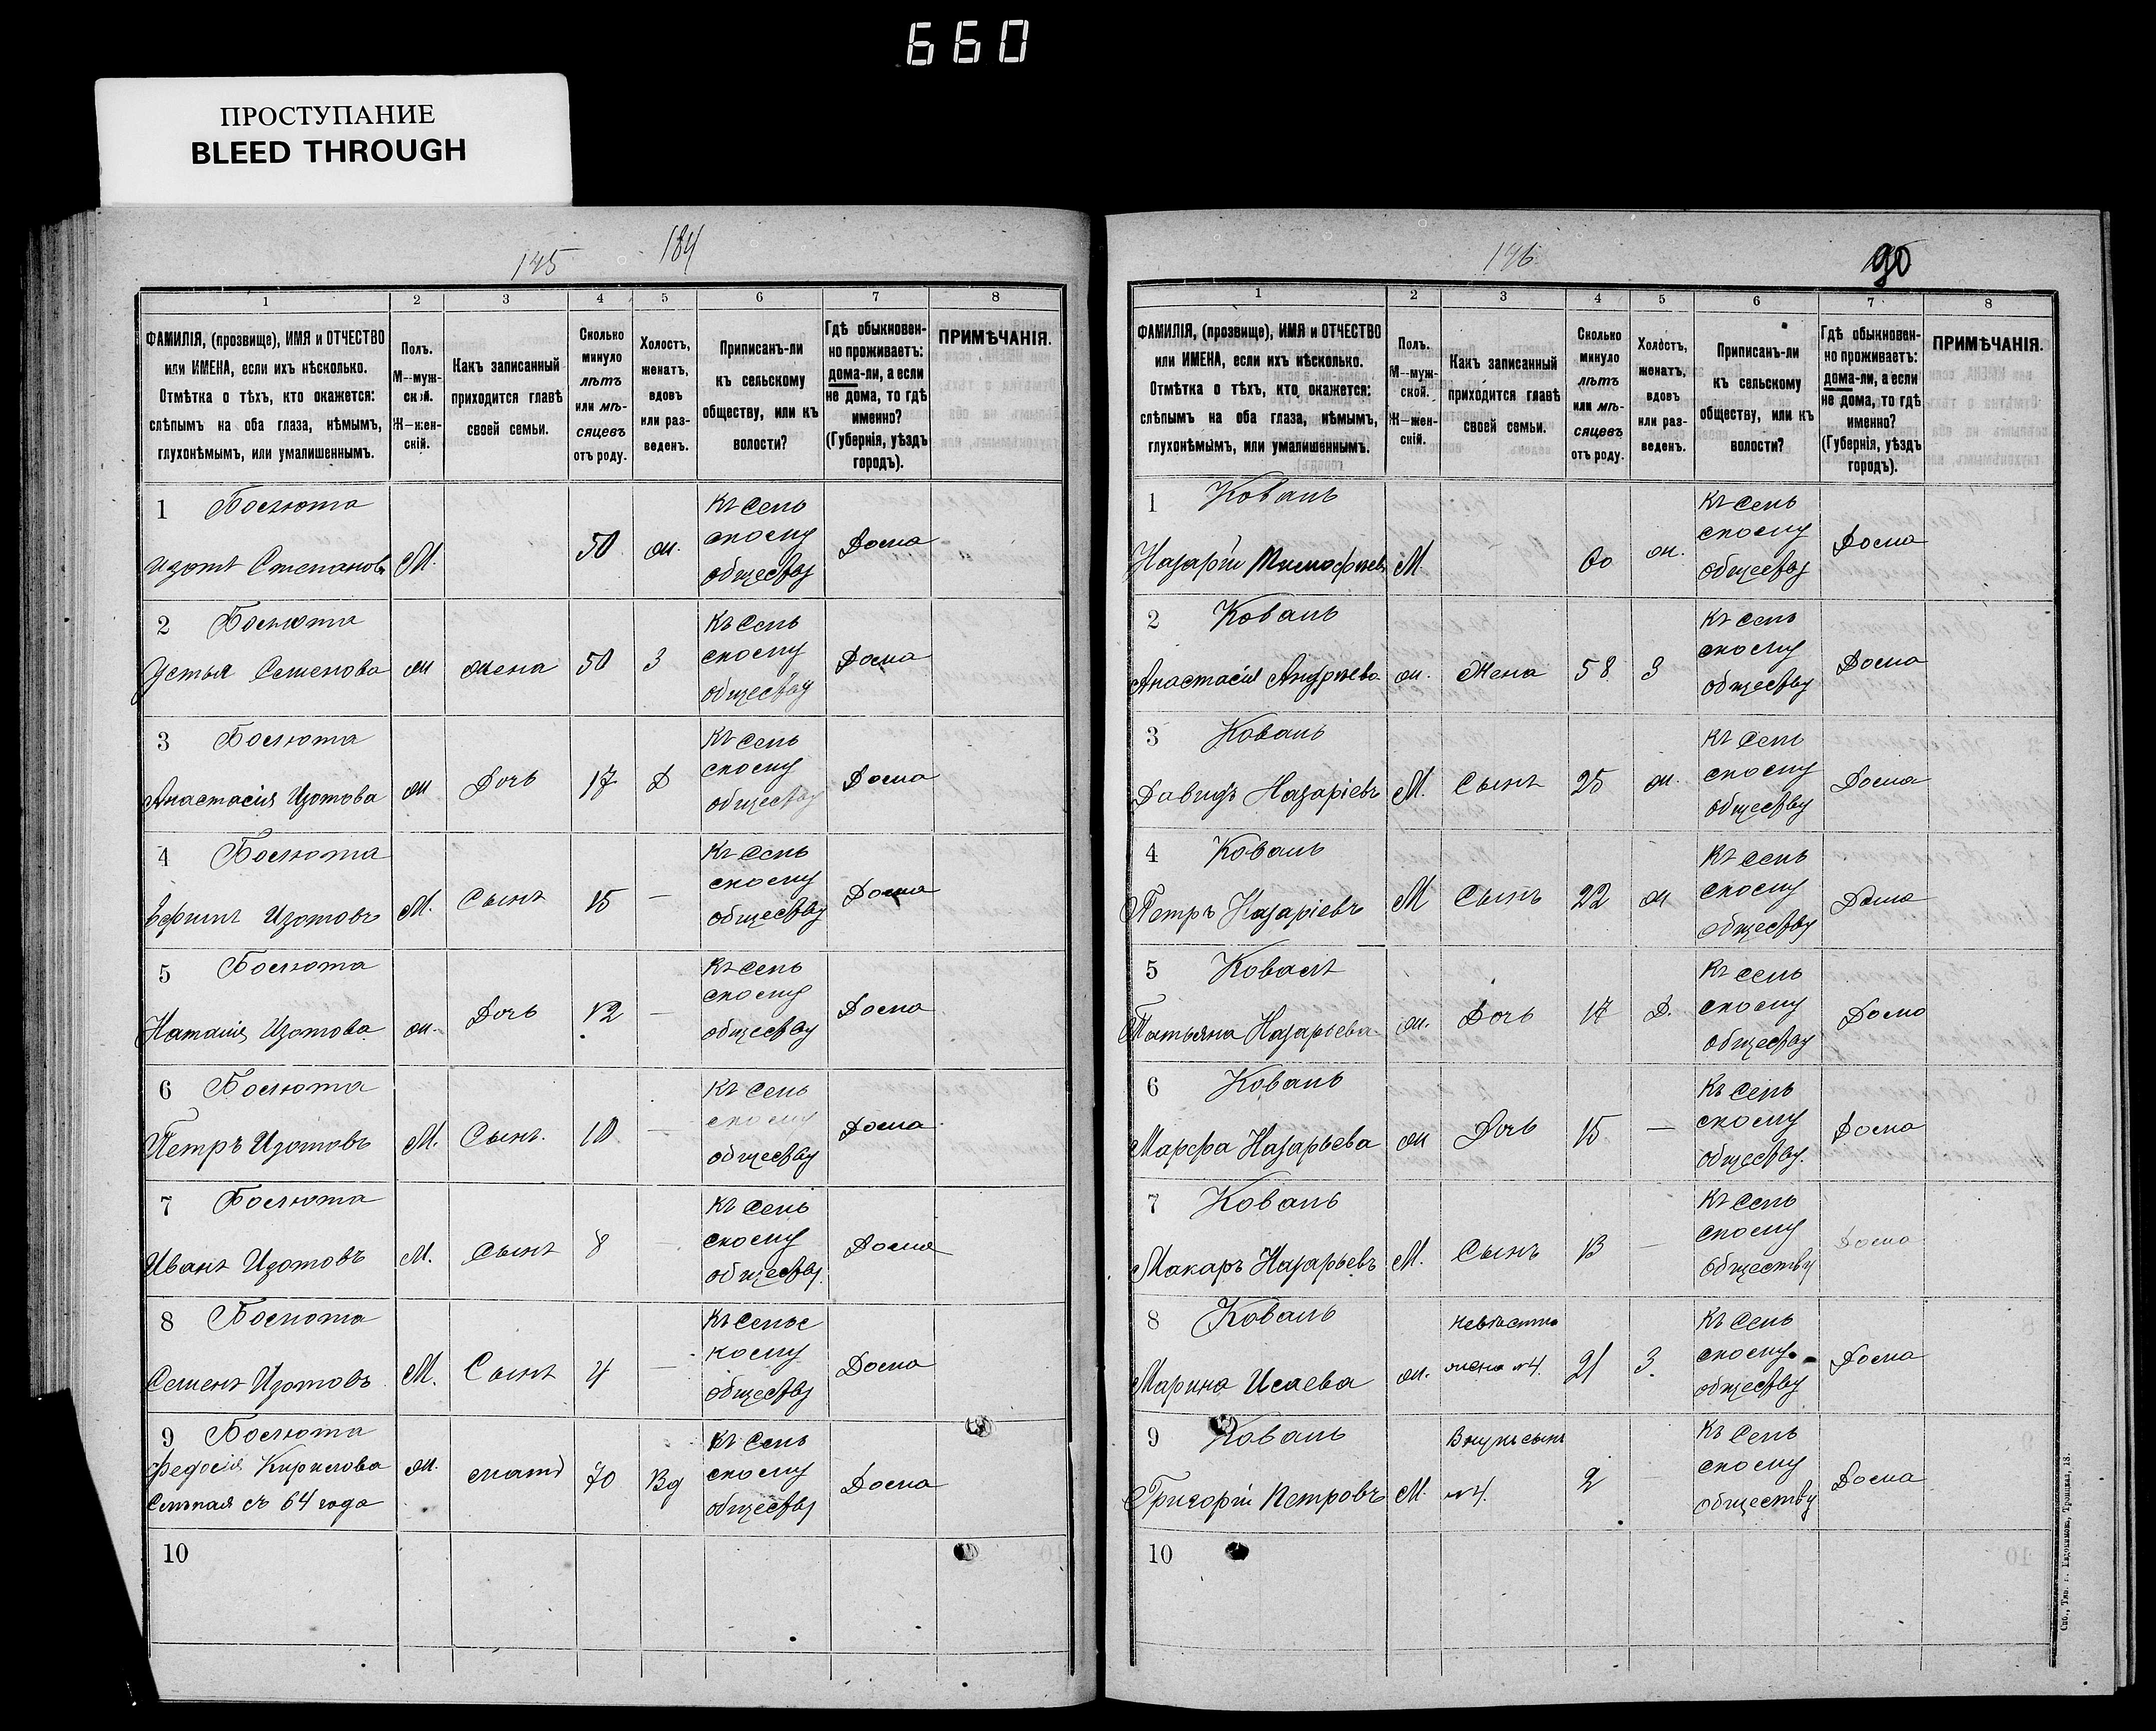 660
ПРОСТУПАНИЕ
BLEED THROUGH
145 184
1 2 3 4 5 6 7 8
ФАМИЛІЯ, (прозвище), ИМЯ и ОТЧЕСТВО
или ИМЕНА, если ихъ нѣсколько.
Отмѣтка о тѣхъ, кто окажется:
слѣпымъ на оба глаза, нѣмымъ,
глухонѣмымъ, или умалишеннымъ.
Полъ.
М—муж-
ской.
Ж—жен-
скій.
Какъ записанный
приходится главѣ
своей семьи.
Сколько
минуло
лѣтъ
или мѣ-
сяцевъ
отъ роду.
Холостъ,
женатъ,
вдовъ
или раз-
веденъ.
Приписанъ-ли
къ сельскому
обществу, или къ
волости?
Гдѣ обыкновен-
но проживаетъ:
дома-ли, а если
не дома, то гдѣ
именно?
(Губернія, уѣздъ
городъ).
ПРИМѢЧАНІЯ.
1 Болюта
Изотъ Степановъ М. 50 ж. Къ сель скому обществу Дома
2 Болюта
Устья Семенова ж жена 50 З Къ сель скому обществу Дома
3 Болюта
Анастасія Изотова ж Дочь 17 Д Къ сель скому обществу Дома
4 Болюта
Ефимъ Изотовъ М. Сынъ 15 — Къ сель скому обществу Дома
5 Болюта
Наталія Изотова ж. Дочь 12 — Къ сель скому обществу Дома
6 Болюта
Петръ Изотовъ М. Сынъ. 10 — Къ сель скому обществу Дома
7 Болюта
Иванъ Изотовъ М. Сынъ 8 — Къ сель скому обществу Дома
8 Болюта
Семенъ Изотовъ М. Сынъ 4 — Къ сельс кому обществу Дома
9 Болюта
Федосія Кирилова ж. мать 70 Вд Къ сель скому обществу Дома
Слѣпая съ 64 года
10
146 90
1 2 3 4 5 6 7 8
ФАМИЛІЯ, (прозвище), ИМЯ и ОТЧЕСТВО
или ИМЕНА, если ихъ нѣсколько.
Отмѣтка о тѣхъ, кто окажется:
слѣпымъ на оба глаза, нѣмымъ,
глухонѣмымъ, или умалишеннымъ.
Полъ.
М—муж-
ской.
Ж—жен-
скій.
Какъ записанный
приходится главѣ
своей семьи.
Сколько
минуло
лѣтъ
или мѣ-
сяцевъ
отъ роду.
Холостъ,
женатъ,
вдовъ
или раз-
веденъ.
Приписанъ-ли
къ сельскому
обществу, или къ
волости?
Гдѣ обыкновен-
но проживаетъ:
дома-ли, а если
не дома, то гдѣ
именно?
(Губернія, уѣздъ
городъ).
ПРИМѢЧАНІЯ.
1 Коваль
Назарій Тимофѣевъ М 60 ж. Къ сель скому обществу Дома
2 Коваль
Анастасія Андрѣева ж. Жена 58 З Къ сель скому обществу Дома
3 Коваль
Давидъ Назаріевъ М. Сынъ 25 ж. Къ сель скому обществу Дома
4 Коваль
Петръ Назаріевъ М Сынъ 22 ж Къ сель скому обществу Дома
5 Коваль
Татьяна Назарьева ж. Дочь 17 Д. Къ сель скому обществу Дома
6 Коваль
Марфа Назарьева ж Дочь 15 — Къ сель скому обществу. Дома
7 Коваль
Макаръ Назарьевъ М. Сынъ 13 — Къ сель скому обществу Дома
8 Коваль
Марина Исаева ж. невѣстка жена №4. 21 З. Къ сель скому обществу Дома
9 Коваль
Григорій Петровъ М. Внукъ сынъ №4. 2 — Къ сель скому обществу Дома
10